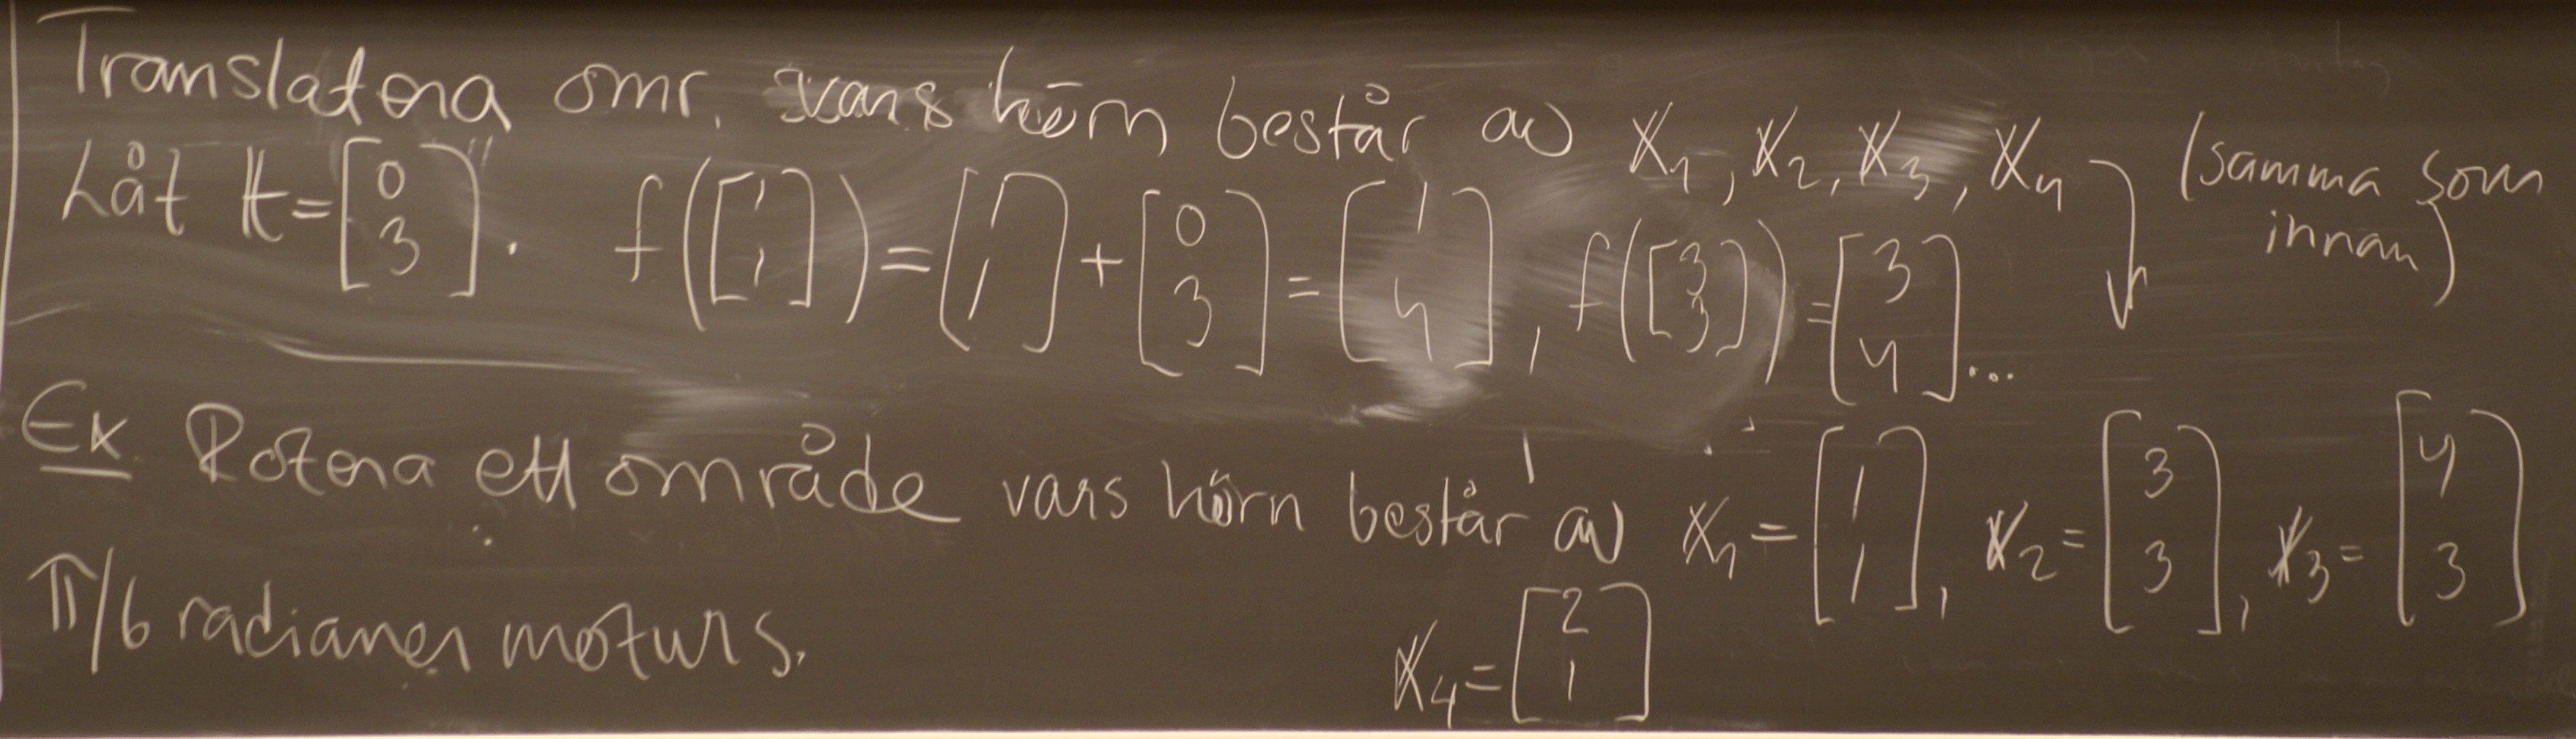 Translatera omr. vars hörn består av x₁, x₂, x₃, x₄ (samma som innan)
Låt t = [0 3]. f([1 1]) = [1 1] + [0 3] = [1 4], f([3 3]) = [3 4] ...
Ex Rotera ett område vars hörn består av x₁ = [1 1], x₂ = [3 3], x₃ = [4 3]
π/6 radianer moturs. x₄ = [2 1]